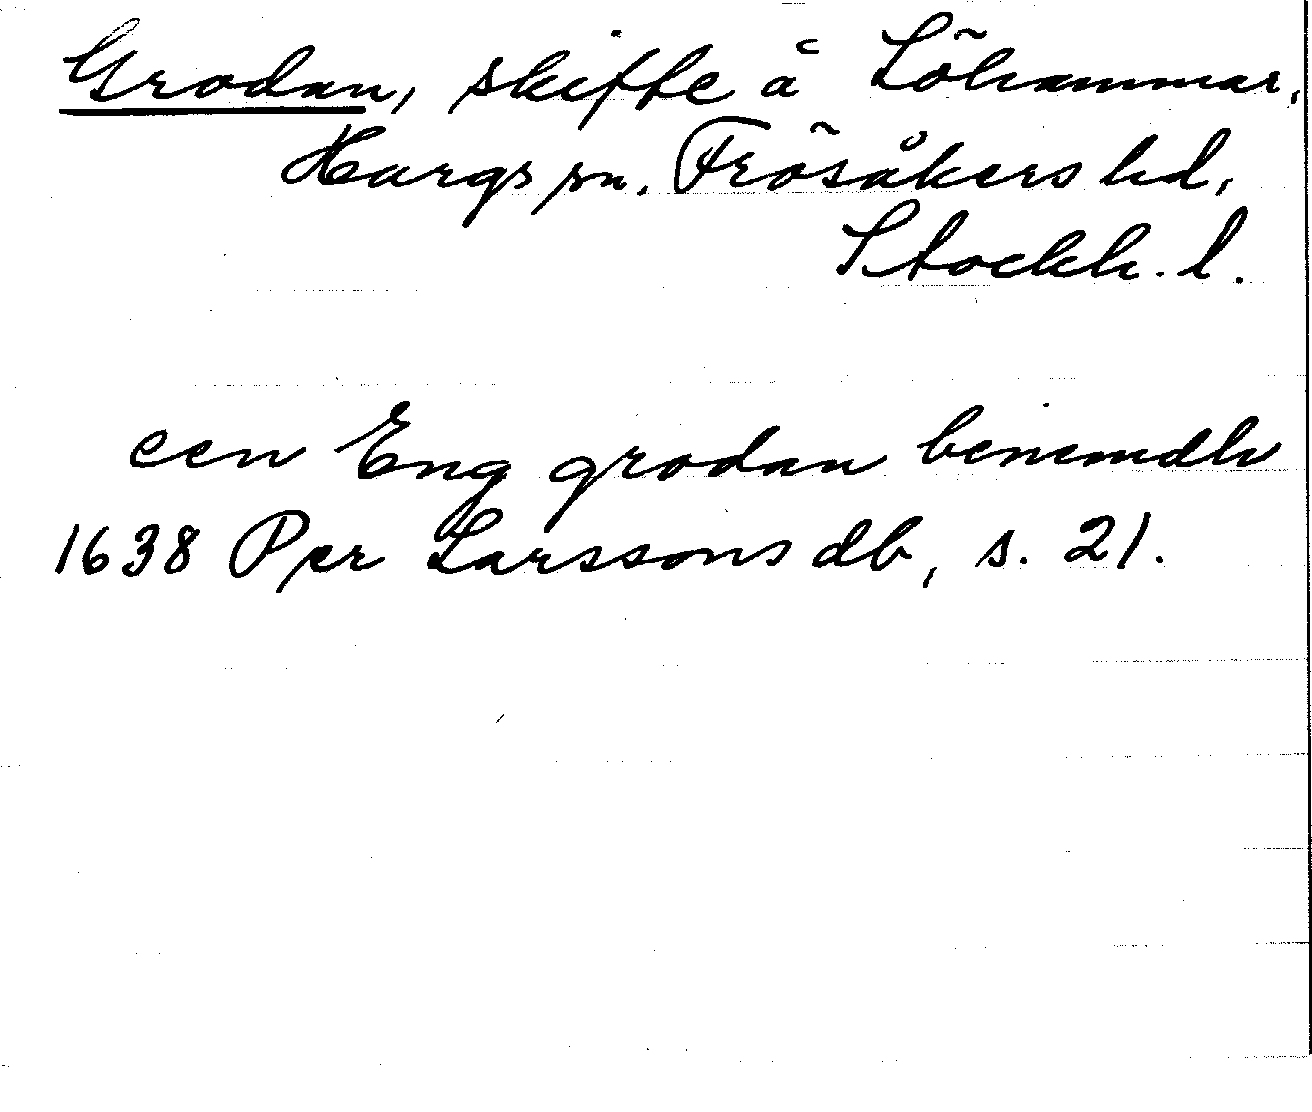 Grodan, skifte å Löhammar,
Hargs sn. Frösåkers hd,
Stockh. l.
een Eng grodan benemdh
1638 Per Larssons db, s. 21.